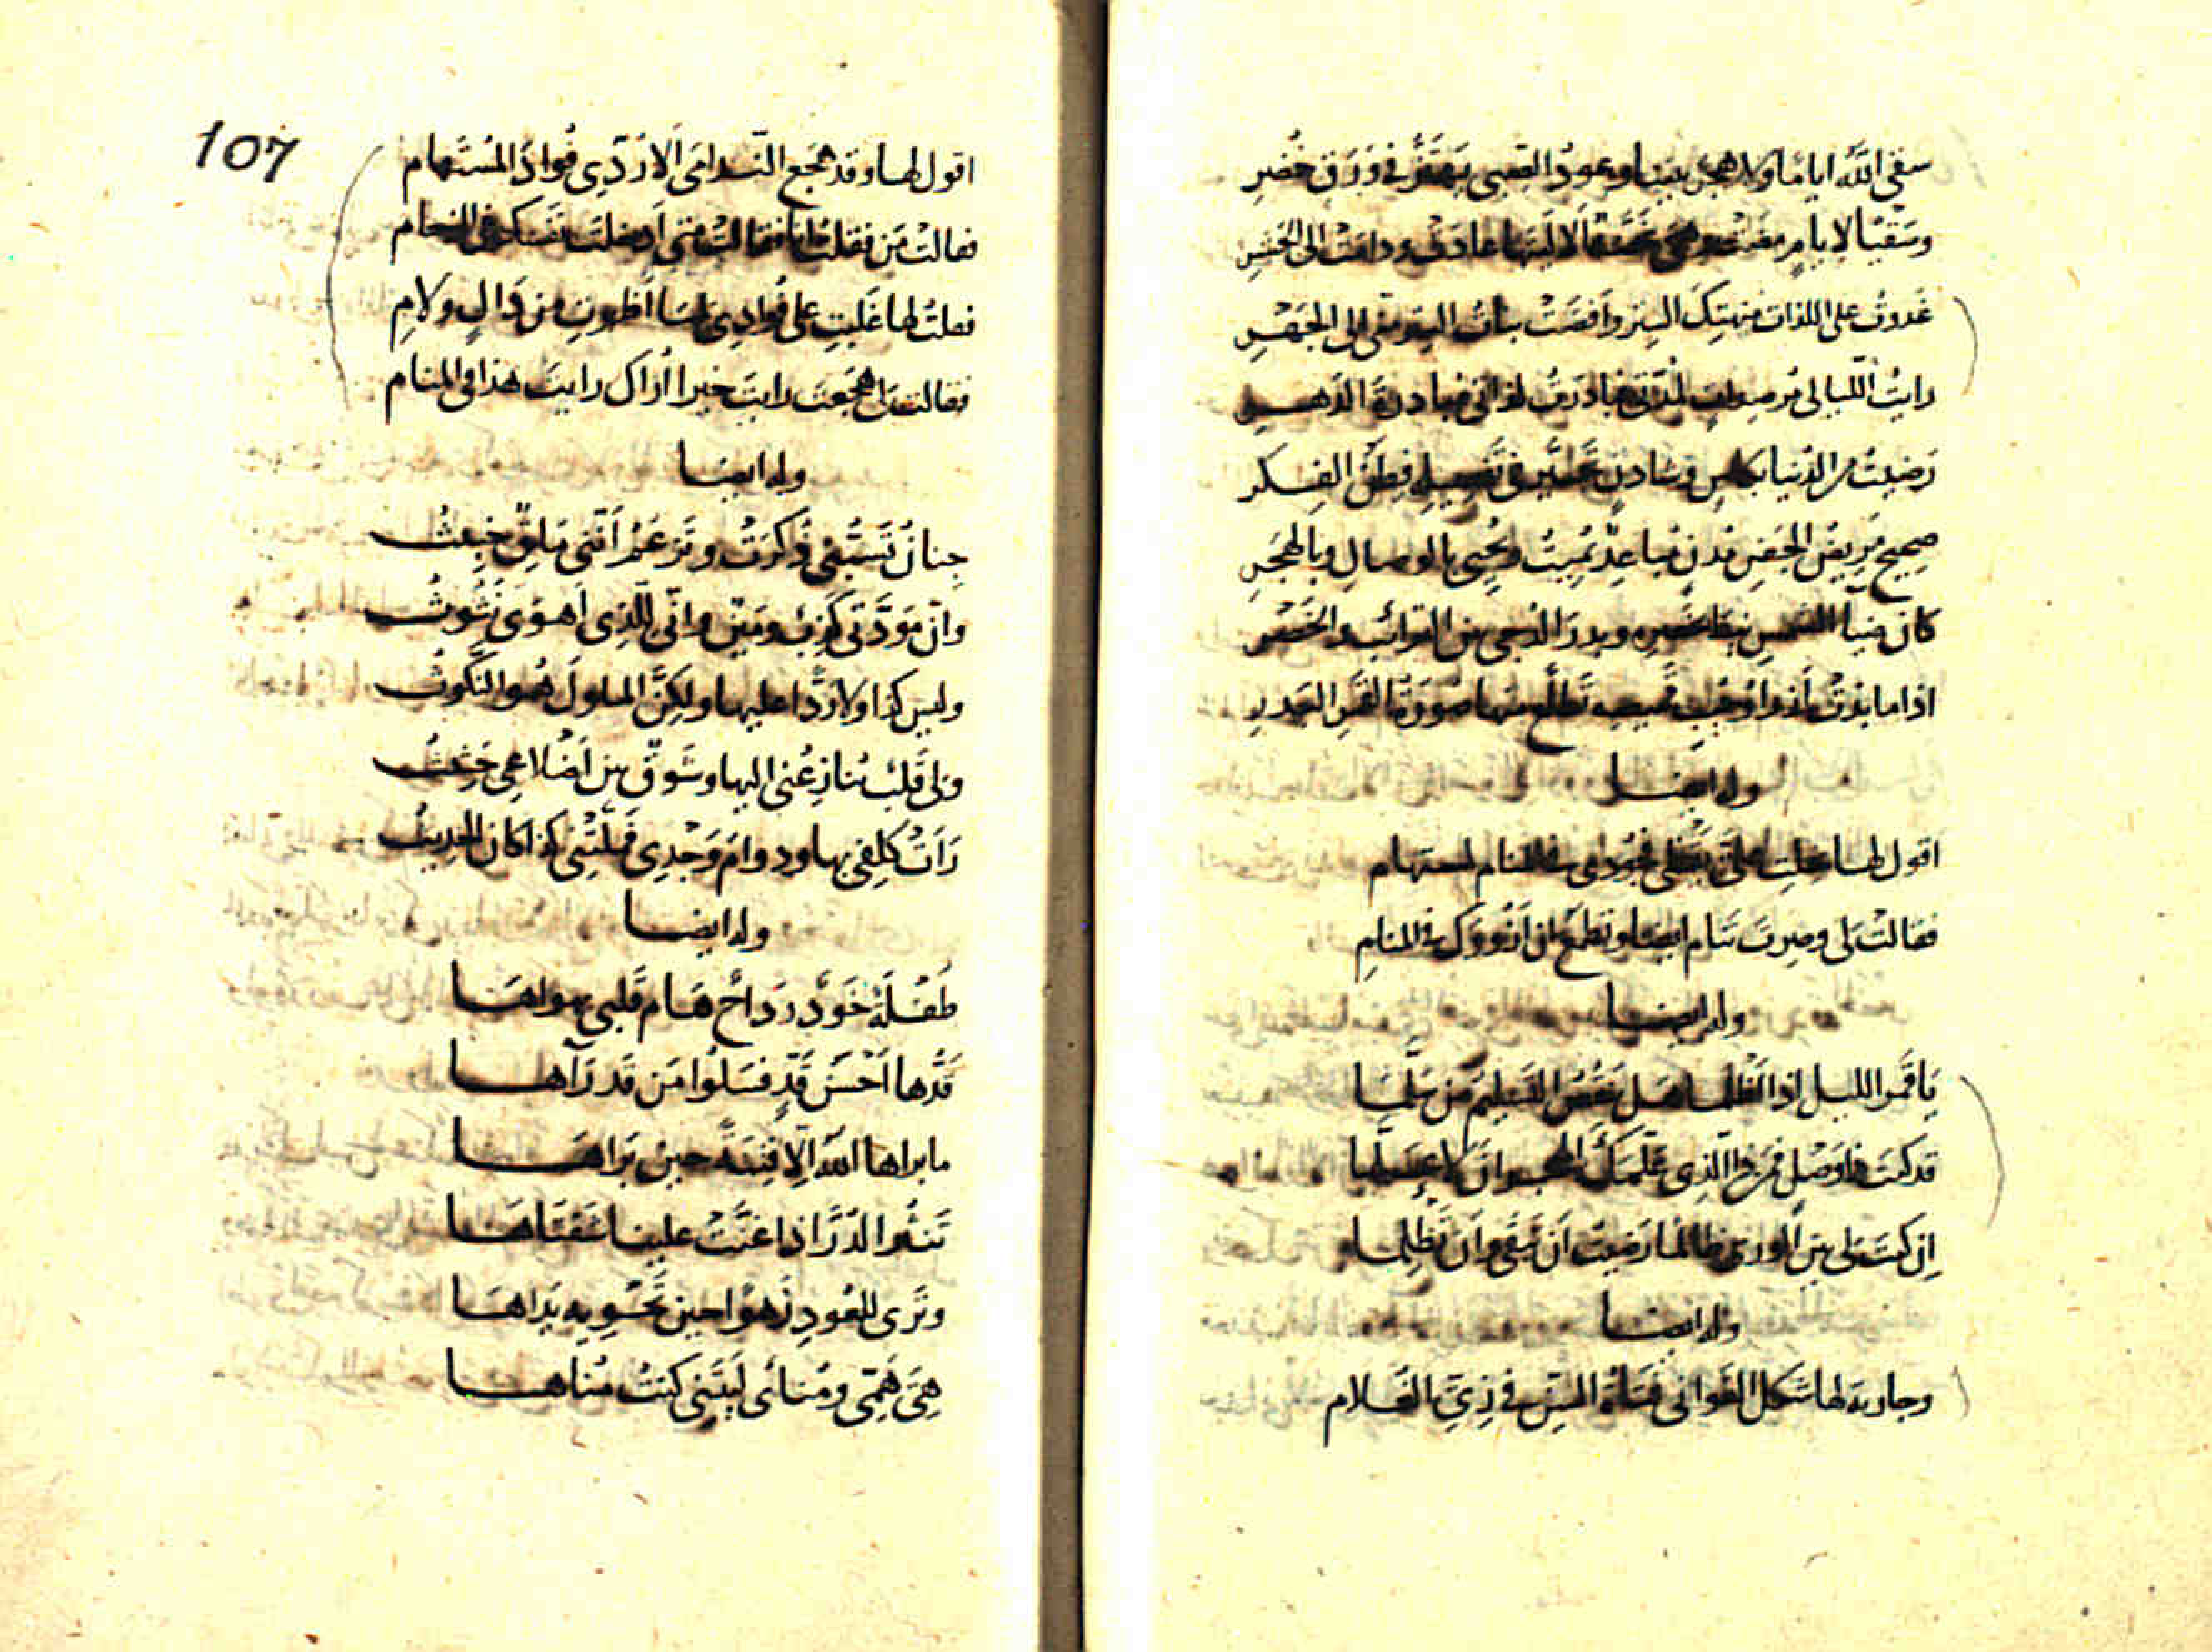 سقى الله اياما ولا هجر بيننا وعود الصبى يهتز فى ورق خضر
وسقيا لايام مضت وهى غضة الا ليتها عادت ودامت الى الحشر
غدوت على اللذات منهتك الستر وافضت بنات السر منى الى الجهر
رايت الليالى مرصدات لمدتى فبادرت لذاتى مبادرة الدهر
رضيت من الدنيا بكاس وشادن تحير فى تفصيله فطن الفكر
صحيح مريض الجفن مدن مباعد يميت ويحيى بالوصال وبالهجر
كان ضياء الشمس وبدر الدجى بين الترائب والخصر
اذا ما بدت ازرار جيب قميصه تطلع منها صورة القمر البدر
وله ايضا
اقول لها بخلت على يقظى فجودى فى المنام لمستهام
فقالت لى وصرت تنام ايضا وتطمع ان ازورك فى المنام
وله ايضا
يا قمر الليل اذا اظلما هل ينقص التسليم من سلما
قد كنت ذا وصل فمن ذا الذى علمك الهجر لا علما
ان كنت لى بين الورى ظالما رضيت ان تبقى وان تظلما
وله ايضا
وجارية لها شكل الغوانى فتاة السن فى زى الغلام
107
اقول لها وقد هجع الندامى الا ردى فواد المستهام
فقالت من فقلت انا فقالت متى ادخلت نفسك فى الزحام
فقلت لها غلبت على فوادى من دال ولام
فقالت هجعت رايت خيرا اراك رايت هذا فى المنام
وله ايضا
جنان تسبنى ذكرت وتزعم اننى ملق خبيث
وان مودتى كذب ومين وانى للذى اهوى بثوث
وليس كذا ولا ردا عليها ولكن الملول هو النكوث
ولى قلب ينازعنى اليها وشوق بين اضلاعى حثيث
رات كلفى بها ودوام وجدى فملتنى كذا كان الحديث
وله ايضا
طفلة خود رداح هام قلبى بهواها
قدها احسن قد فسلوا من قد رآها
ما براها الله الا فتنة حين براها
تنثر الدر اذا غنت علينا شفتاها
وترى للعود زهوا حين تحويه يداها
هى همى ومنائى ليتنى كنت مناها